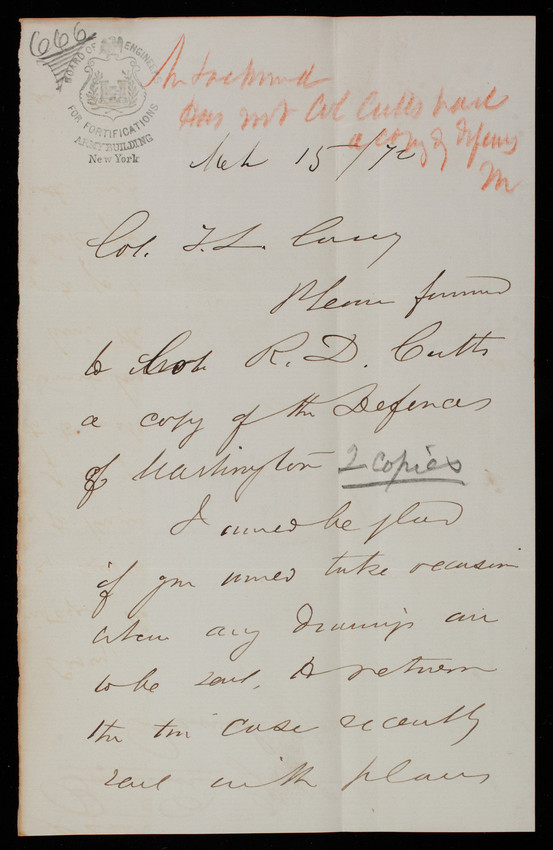 666
BOARD OF ENGINEERS
FOR FORTIFICATIONS
ARMY BUILDING
New York
has not Col Cutts had
a copy of Defences
M
Mch 15/72
Col. T. L. Casey
Please forward
to Col R. D. Cutts
a copy of the Defences
of Washington 2 copies
I would be glad
if you would take occasion
when any drawings are
to be sent, to return
the tin case recently
sent with plans